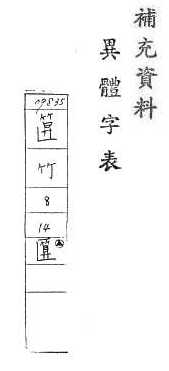 補充資料
異體字表
09835
竹
8
14